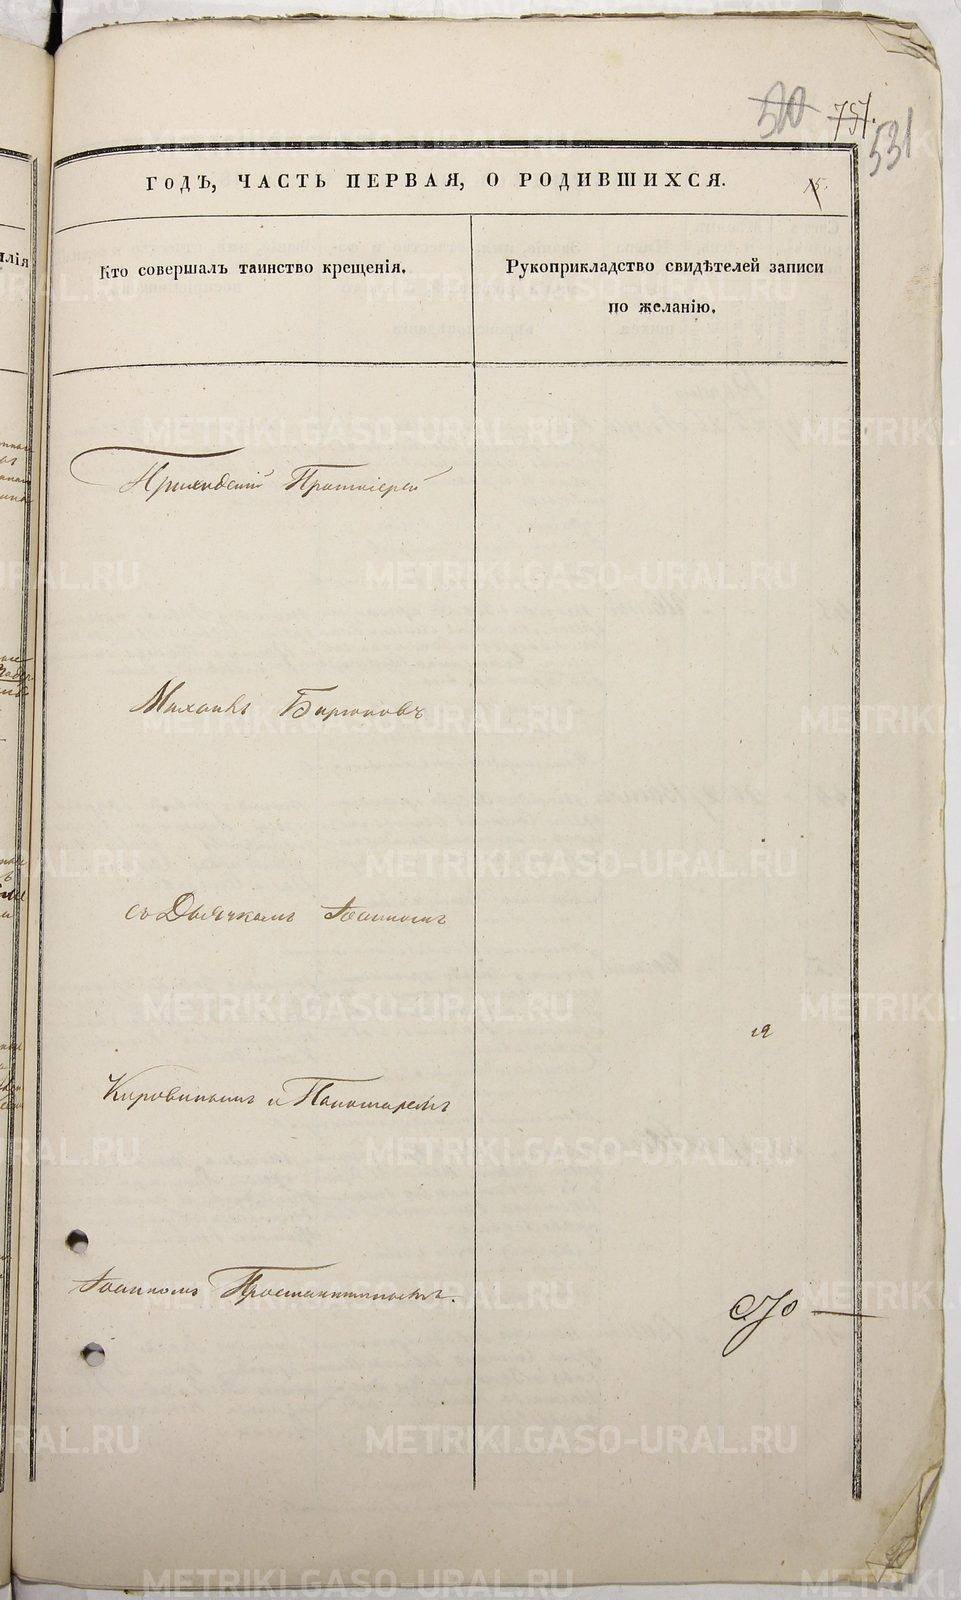 510 757.
531
ГОДЪ, ЧАСТЬ ПЕРВАЯ, О РОДИВШИХСЯ. 15.
Кто совершалъ таинство крещенія.
Рукоприкладство свидѣтелей записи
по желанію.
Приходскій Протоіерей
Михаилъ Бирюковъ
съ Дьячкомъ Іоанномъ
и Пономаремъ
Іоанномъ
METRIKI.GASO-URAL.RU